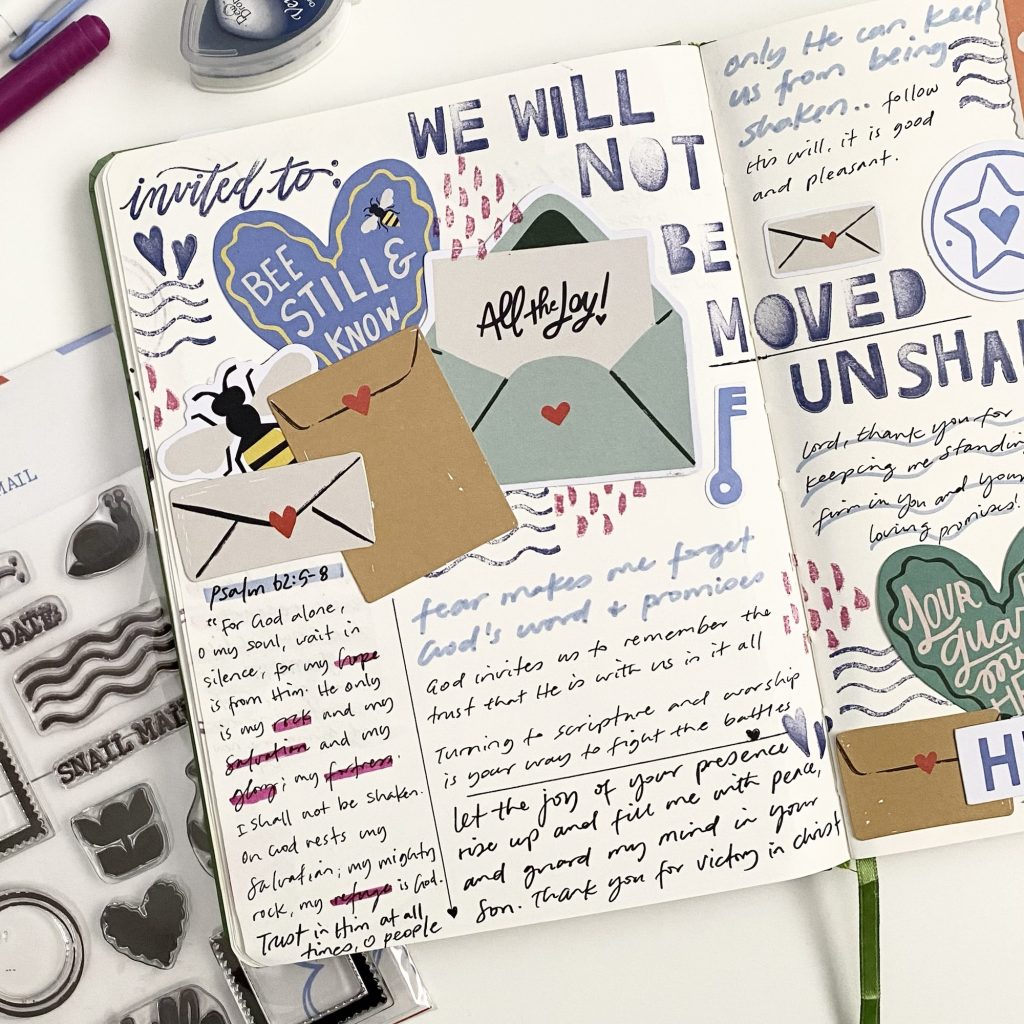 invited to:
WE WILL
NOT
BE
MOVED
UNSHA
BEE
STILL &
KNOW
All the Joy!
Psalm 62:5-8
"for God alone,
o my soul, wait in
silence, for my hope
is from Him. He only
is my rock and my
salvation and my
glory; my fortress.
I shall not be shaken.
on God rests my
salvation; my mighty
rock, my refuge is God.
Trust in Him at all
times, o people
fear makes me forget
God's word + promises
God invites us to remember the
trust that He is with us in it all
Turning to scripture and worship
is your way to fight the battles
Let the joy of your presence
rise up and fill me with peace,
and guard my mind in your
son. Thank you for victory in christ
only He can keep
us from being
shaken.. follow
His will, it is good
and pleasant.
Lord, thank you for
keeping me standing
firm in You and your
loving promises!
YOUR
guar
H
MAIL
DATE:
SNAIL MAIL